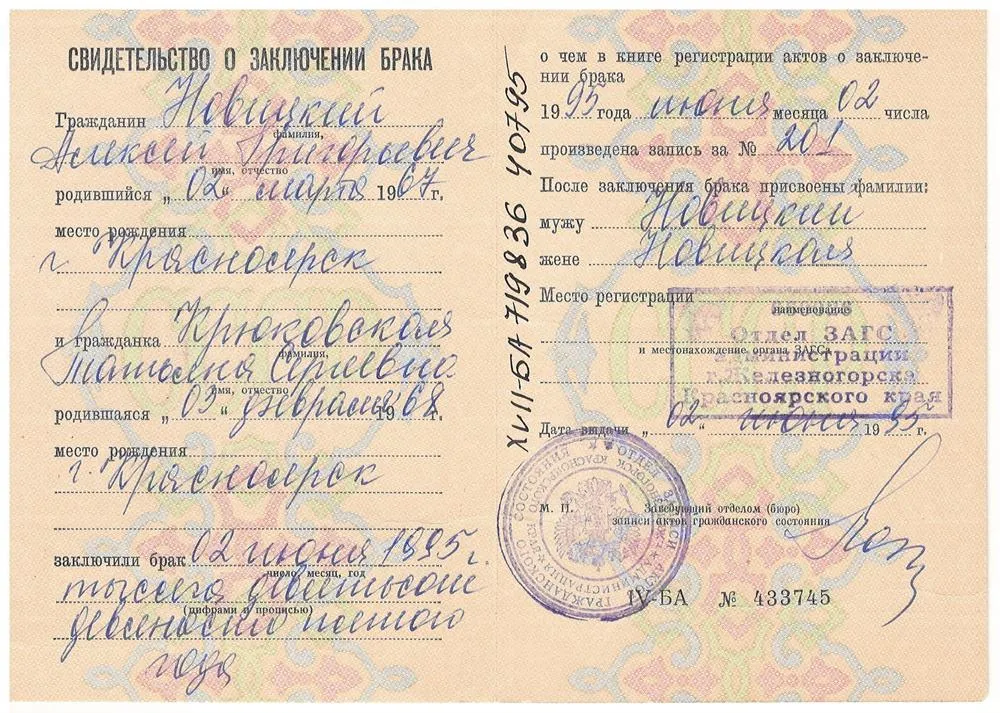 СВИДЕТЕЛЬСТВО О ЗАКЛЮЧЕНИИ БРАКА
Гражданин Новицкий
фамилия,
Алексей Григорьевич
имя, отчество
родившийся „ 02 “ марта 1967 г.
место рождения
г Красноярск
и гражданка Крюковская
фамилия,
Татьяна Сергеевна
имя, отчество
родившаяся „ 03 “ февраля 1968 г.
место рождения
г. Красноярск
заключили брак 02 июня 1995 г.
число, месяц, год
тысяча девятьсот
(цифрами и прописью)
девяносто пятого
года
XVIII-БА 719836 40795
о чем в книге регистрации актов о заключе-
нии брака
1995 года июня месяца 02 числа
произведена запись за № 201
После заключения брака присвоены фамилии:
мужу Новицкий
жене Новицкая
Место регистрации
наименование
Отдел ЗАГС
и местонахождение органа ЗАГСа
администрации
г.Железногорска
Красноярского края
Дата выдачи „ 02 “ июня 1995 г.
М. П.
Заведующий отделом (бюро)
записи актов гражданского состояния
IV-БА № 433745